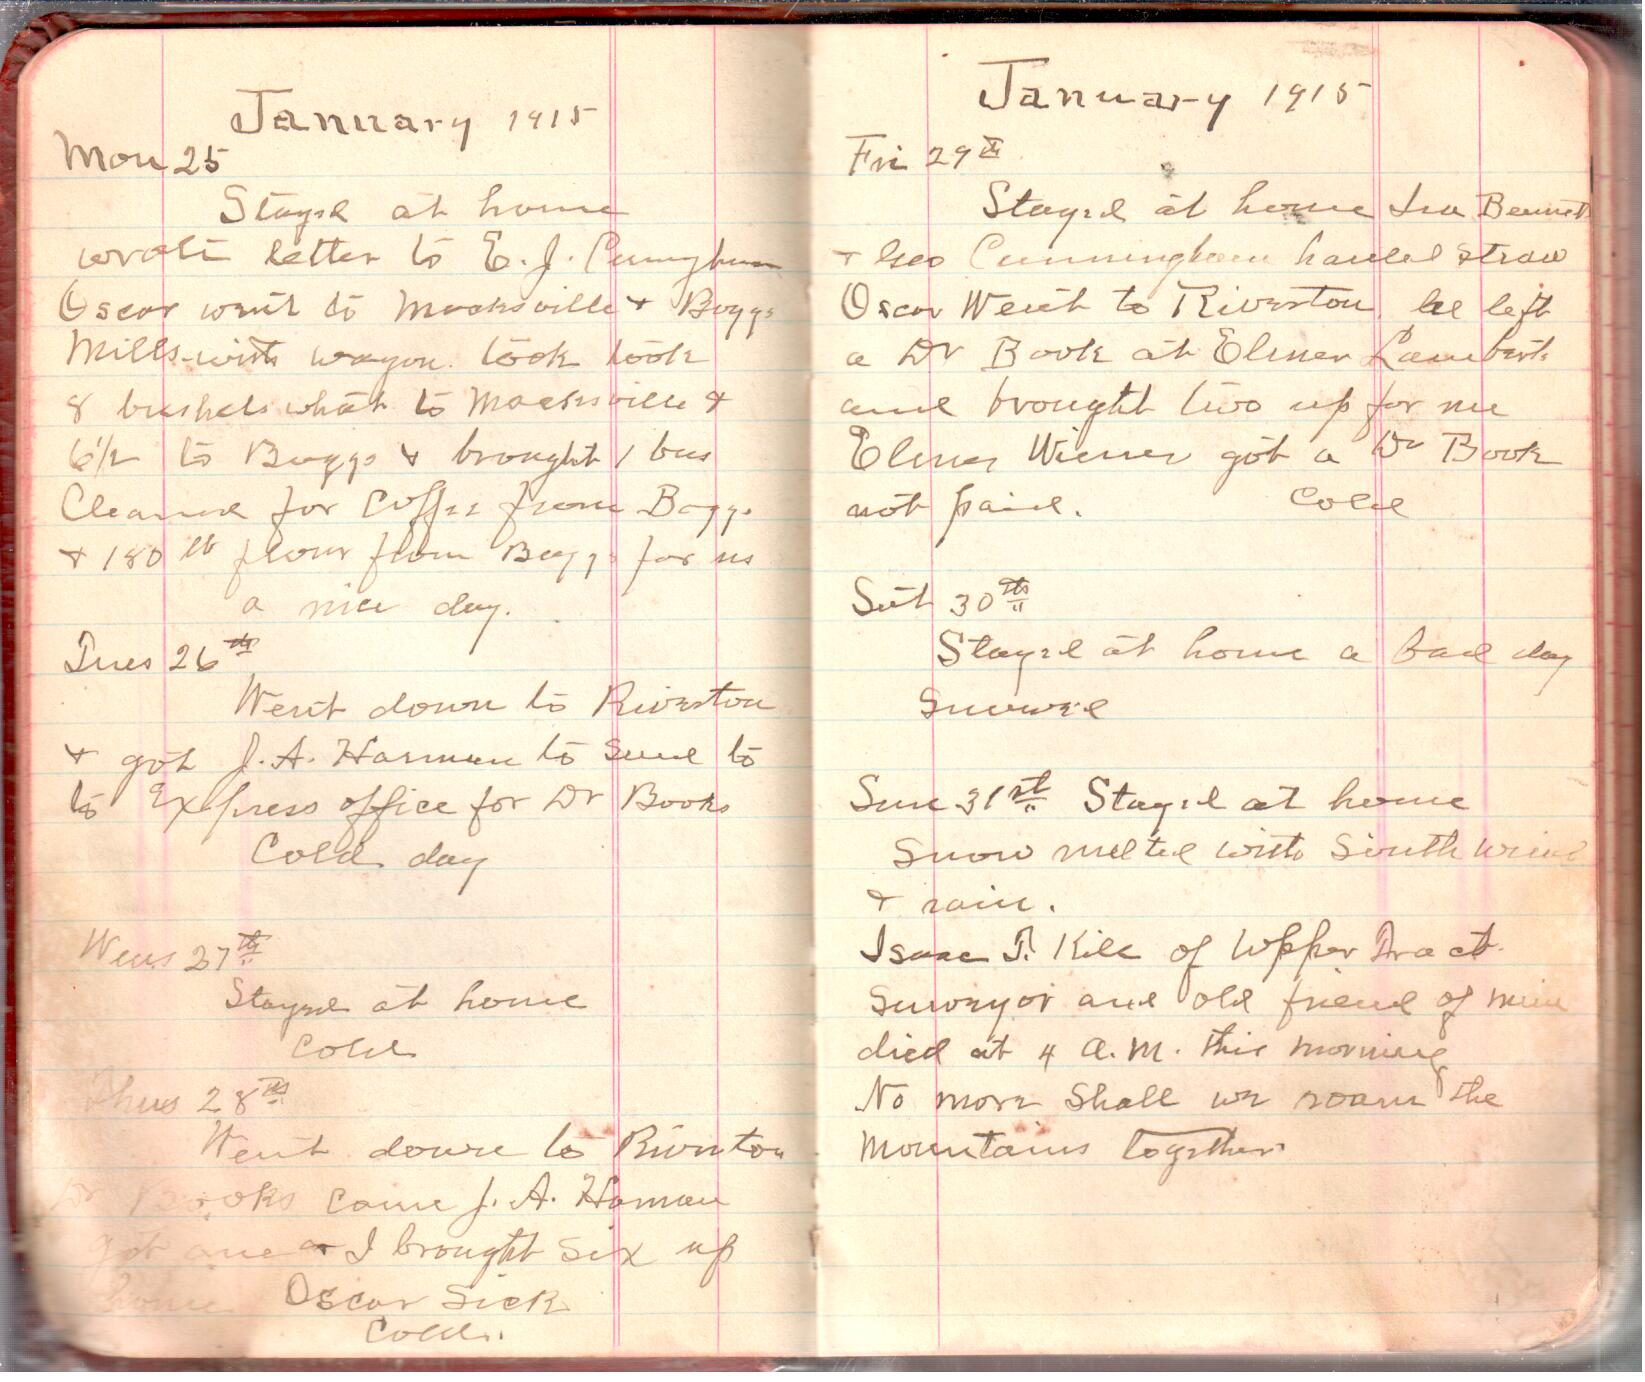 January 1915
Mon 25
Stayed at home
wrote letter to E. J. Cunningham
Oscar went to Macksville + Boggs
Mills with wagon. took took
8 bushels wheat to Macksville +
6 1/2 to Boggs + brought 1 bus
Cleaned for Coffee from Boggs
+ 180 lb flour from Boggs for us
a nice day.
Tues 26th
Went down to Riverton
+ got J. A. Harman to send to
to Express office for Dr Books
Cold day
Wens 27th
Stayed at home
Cold
Thus 28th
Went down to Riverton
Dr Books came J. A. Harman
got one + I brought six up
home Oscar Sick
Cold.
January 1915
Fri 29th
Stayed at home Ira Bennett
+ Geo Cunningham hauled straw
Oscar Went to Riverton he left
a Dr Book at Elmer Lamberts
and brought two up for me
Elmer Wimer got a Dr Book
not paid. Cold
Sat 30th
Stayed at home a bad day
Snowed
Sun 31st Stayed at home
Snow melted with South wind
+ rain.
Isaac T. Kile of Upper Tract
Surveyor and old friend of mine
died at 4 A.M. this morning
No more shall we roam the
Mountains together.